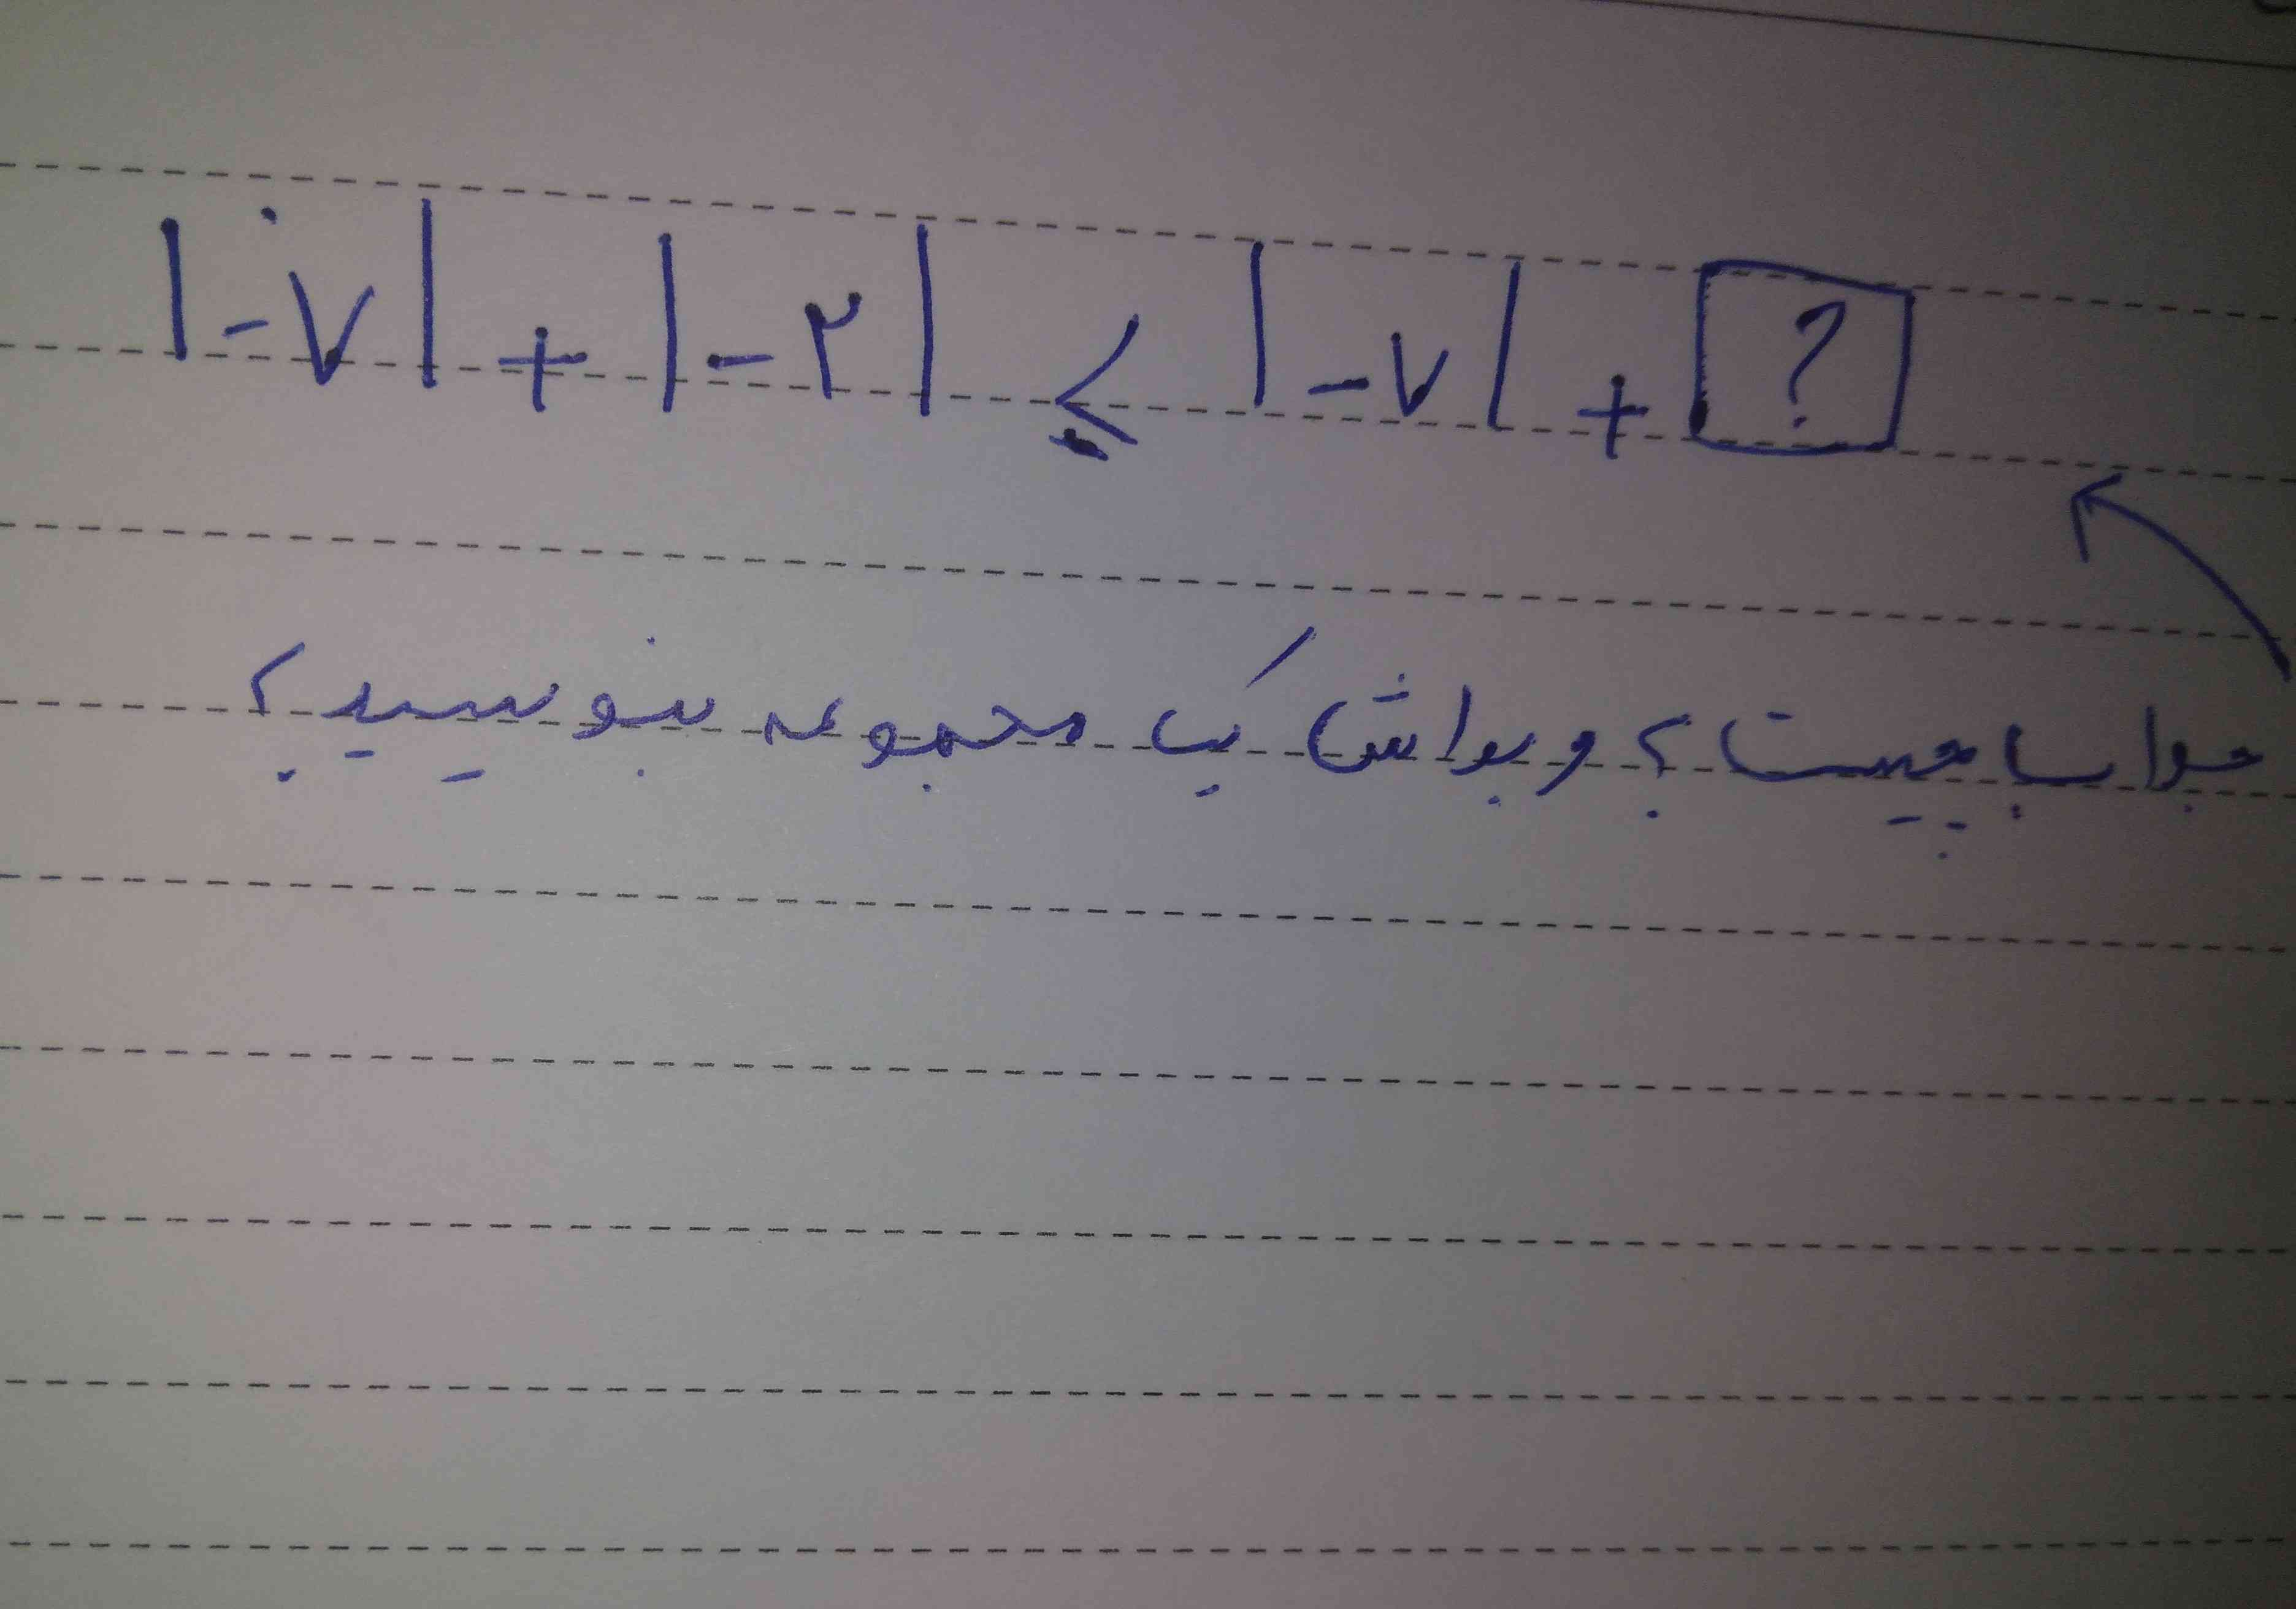 |-۷| + |-۲| ≤ |-۷| + ?
جواب چیست؟ و براش یک مجموعه بنویسید؟